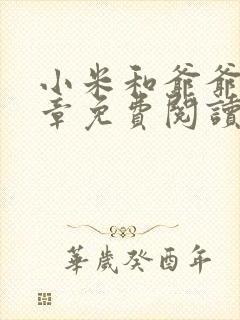 小米和爺爺
章免費閱讀
華歲癸酉年